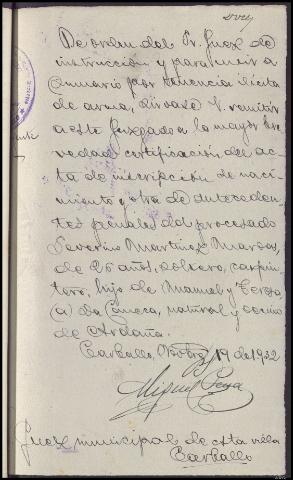 De orden del Sr. Juez de
instrucción y para unir a
sumario por tenencia ilícita
de arma, sírvase V. remitir
a este Juzgado a la mayor bre
vedad certificación del ac
ta de inscripción de naci
miento y otra de anteceden
tes penales del procesado
Severino Martínez
de 26 años, soltero, carpin
tero, hijo de Manuel y Teresa,
natural y vecino
de Ardaña.
Carballo, 19 de 1932
Miguel
Juez municipal de esta villa
Carballo